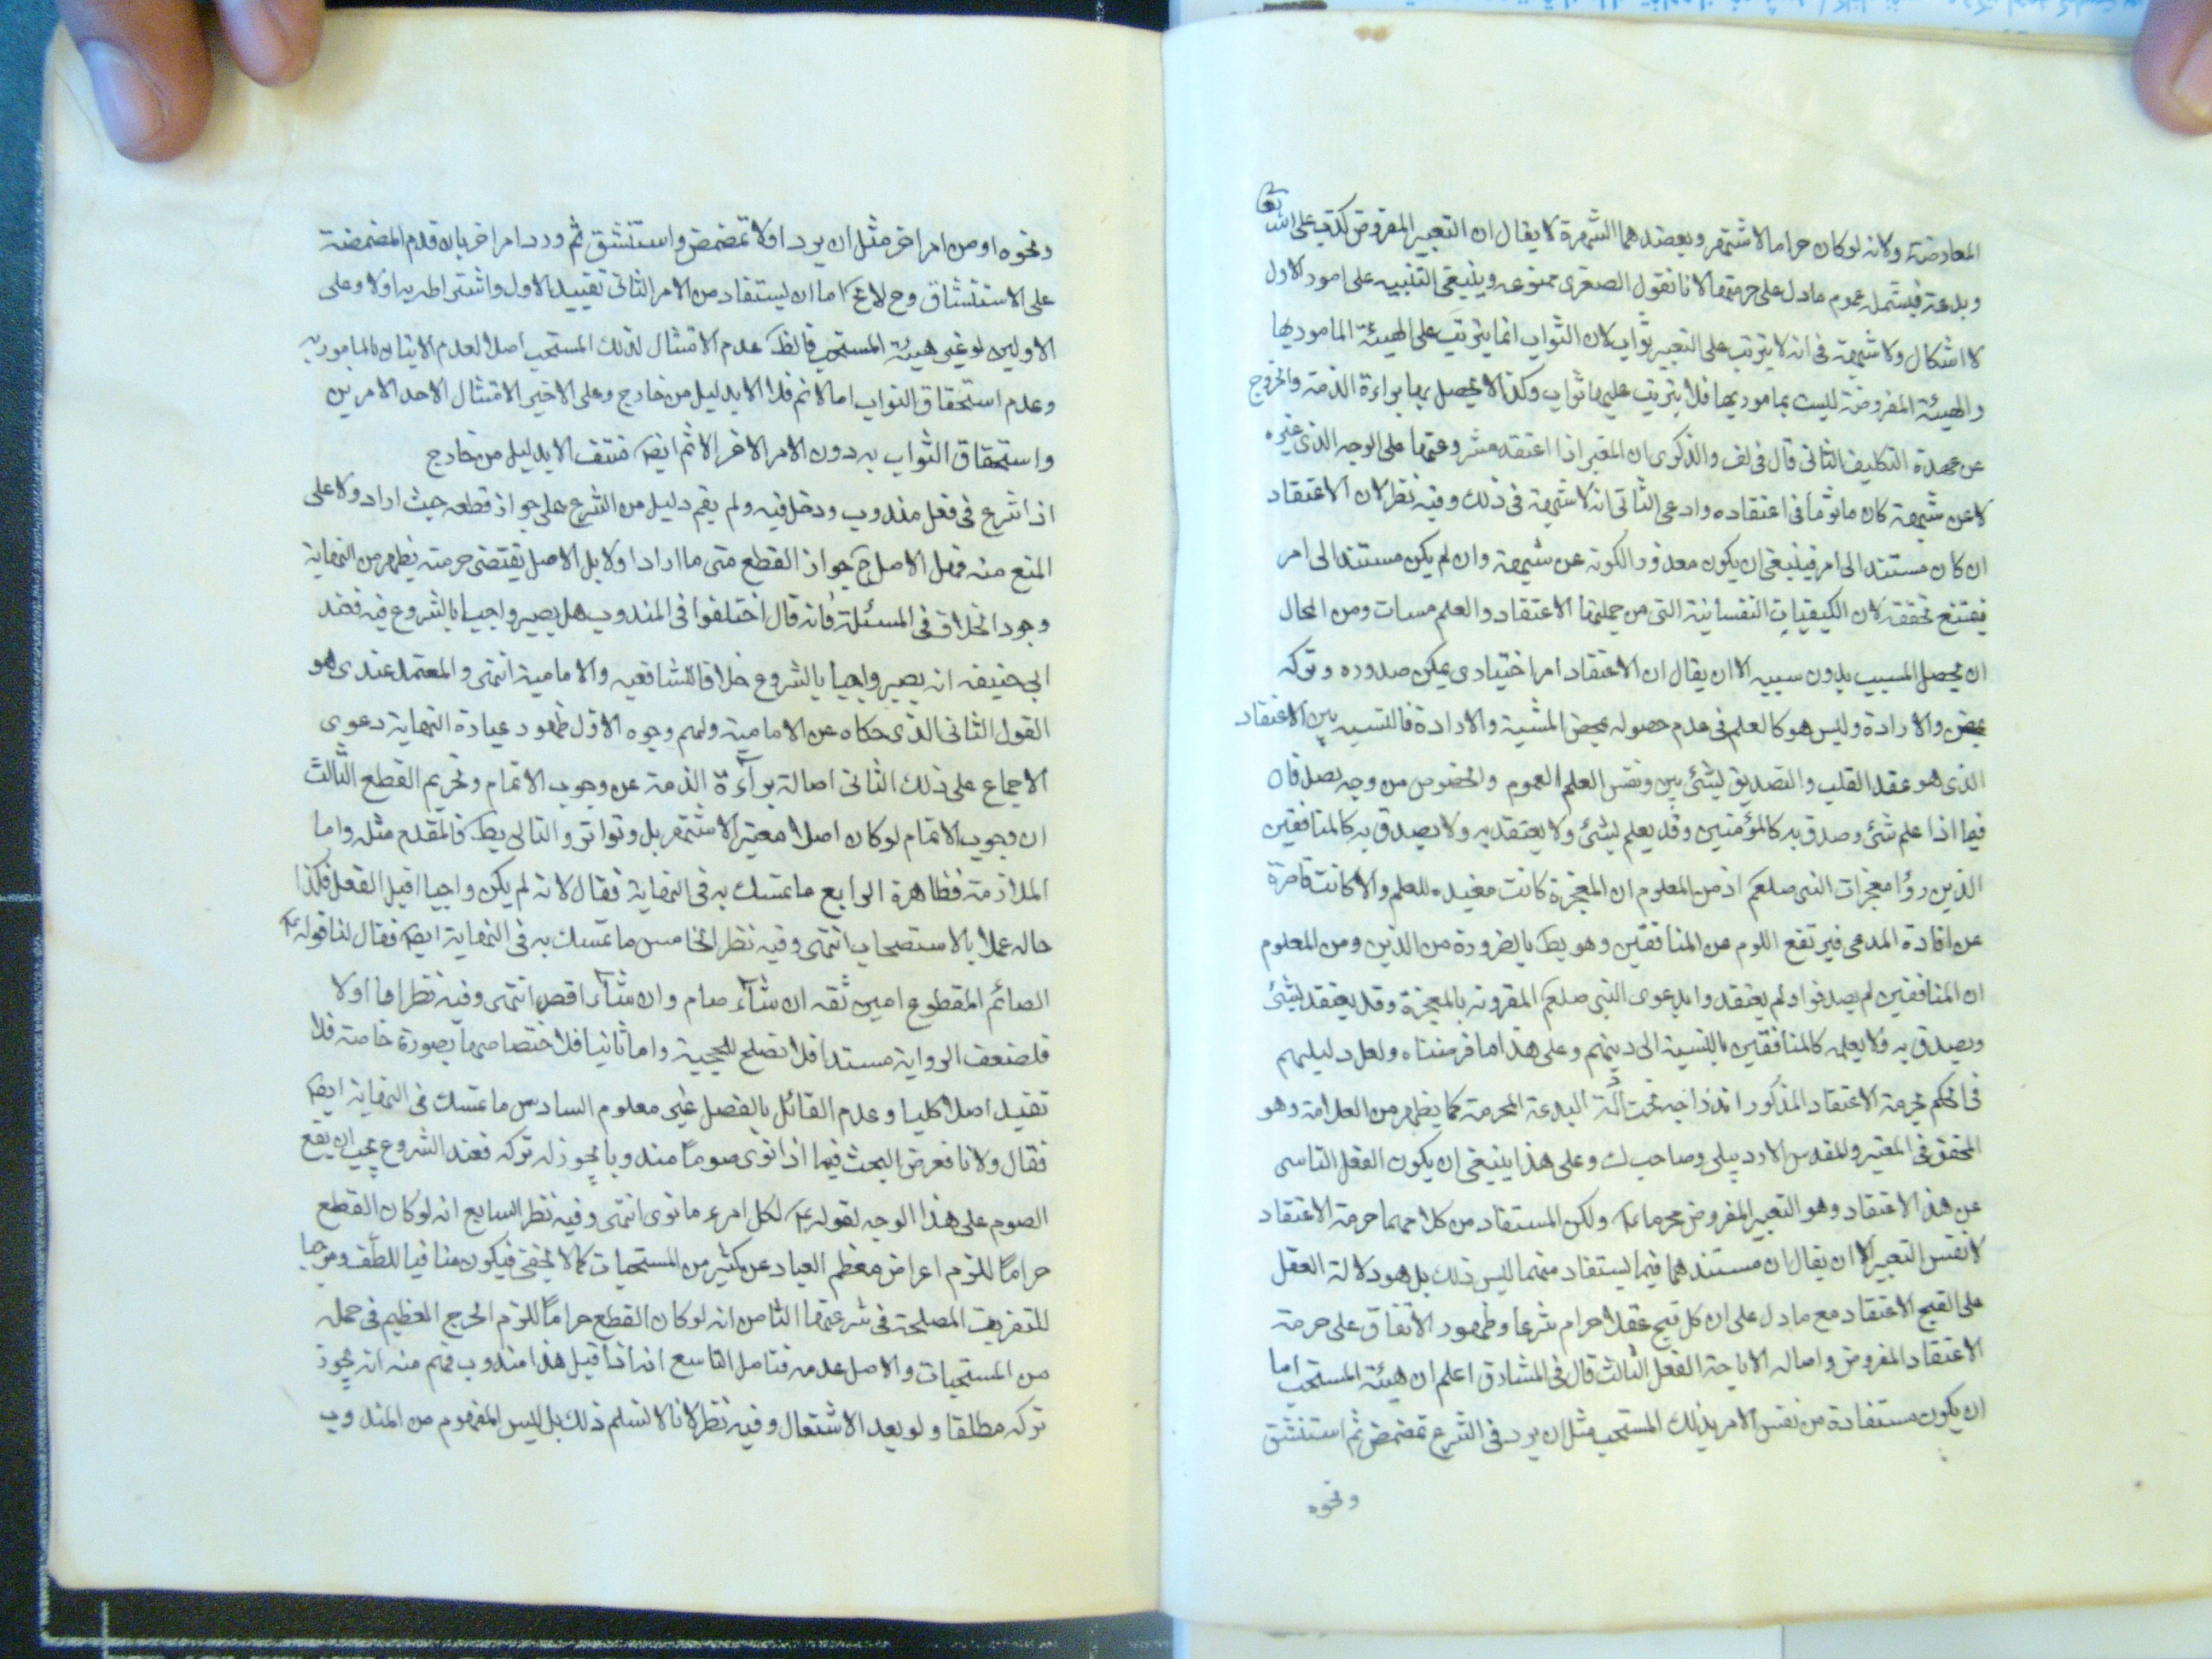 المعارضة ولانه لو كان حراما لاشتهر ويعضدهما الشهرة لا يقال ان التغيير المفروض كذب على الله تعالى
وبدعة فيشمله عموم ما دل على حرمتهما لانا نقول الصغرى ممنوعه وينبغي التنبيه على امور الاول
لا اشكال ولا شبهة في انه لا يترتب على التغيير ثواب لان الثواب انما يترتب على الهيئة المامور بها
والهيئة المفروضة ليست بمامور بها فلا يترتب عليها ثواب وكذا لا يحصل بها براءة الذمة والخروج
عن عهدة التكليف الثاني قال في لف والذكرى ان المغير اذا اعتقد مشروعيتها على الوجه الذي غيره
لا عن شبهة كان ماثوما في اعتقاده وادعى الثاني انه لا شبهة في ذلك وفيه نظر لان الاعتقاد
ان كان مستندا الى امر فينبغي ان يكون معذورا لكونه عن شبهة وان لم يكن مستندا الى امر
فيمتنع تحققه لان الكيفيات النفسانية التي من جملتها الاعتقاد والعلم مسببات ومن المحال
ان يحصل المسبب بدون سببه الا ان يقال ان الاعتقاد امر اختيارى يمكن صدوره وتركه
بمحض والارادة وليس هو كالعلم في عدم حصوله بمحض المشية والارادة فالنسبه بين الاعتقاد
الذي هو عقد القلب والتصديق لشئ بين ونفس العلم العموم والخصوص من وجه يصدقان
فيما اذا علم شئ وصدق به كالمؤمنين وقد يعلم لشئ ولا يعتقد به ولا يصدق به كالمنافقين
الذين رؤا معجزات النبى صلعم اذ من المعلوم ان المعجزة كانت مفيده للعلم والا كانت قاصرة
عن افادة المدعى فيرتفع اللوم عن المنافقين وهو بط بالضرورة من الدين ومن المعلوم
ان المنافقين لم يصدقوا ولم يعتقدوا بدعوى النبى صلعم المقرونه بالمعجزة وقد يعتقد لشئ
ويصدق به ولا يعلمه كالمنافقين بالنسبة الى دينهم وعلى هذا ما فرضناه ولعل دليلهم
في الحكم بحرمة الاعتقاد المذكور اندراجه تحت البدعة المحرمة كما يظهر من العلامة وهو
المحقق في المعتبر والمقدس الاردبيلى وصاحب ك وعلى هذا ينبغي ان يكون الفعل الناسى
عن هذا الاعتقاد وهو التغيير المفروض محرما ولكن المستفاد من كلامهما حرمة الاعتقاد
لا نفس التغيير الا ان يقال ان مستندهما فيما يستفاد منهما ليس ذلك بل هو دلالة العقل
على القبح الاعتقاد مع ما دل على ان كل قبيح عقلا حرام شرعا وظهور الاتفاق على حرمة
الاعتقاد المفروض واصاله الاباحة الفعل الثالث قال في المشارق اعلم ان هيئة المستحب اما
ان يكون مستفادة من نفس الامر بذلك المستحب مثل ان يرد في الشرع تمضمض ثم استنشق
ونحوه
ونحوه او من امر اخر مثل ان يرد اولا تمضمض واستنشق ثم ورد امر اخر بان قدم المضمضة
على الاستنشاق وح لا يخ اما ان يستفاد من الامر الثاني تقييد الاول واشتراطه به اولا وعلى
الاولين لو غير هيئة المستحب فالظ عدم الامتثال لذلك المستحب اصلا لعدم الاتيان بالمامور به
وعدم استحقاق الثواب اما الاثم فلا الا بدليل من خارج وعلى الاخير الامتثال الاحد الامرين
واستحقاق الثواب به دون الامر الاخر الاثم ايض منتف الا بدليل من خارج
اذا شرع في فعل مندوب ودخل فيه ولم يقم دليل من الشرع على جواز قطعه حيث اراد ولا على
المنع منه فهل الاصل ح جواز القطع متى ما اراد اولا بل الاصل يقتضى حرمته يظهر من النهاية
وجود الخلاف في المسئلة فانه قال اختلفوا في المندوب هل يصير واجبا بالشروع فيه فعند
ابي حنيفه انه يصير واجبا بالشروع خلافا للشافعيه والامامية انتهى والمعتمد عندى هو
القول الثانى الذى حكاه عن الامامية ولهم وجوه الاول ظهور عبارة النهاية دعوى
الاجماع على ذلك الثانى اصالة براءة الذمة عن وجوب الاتمام وتحريم القطع الثالث
ان وجوب الاتمام لو كان اصلا معتبرا لاشتهر بل وتواتر والتالى بط فالمقدم مثله واما
الملازمة فظاهرة الرابع ما تمسك به في النهاية فقال لانه لم يكن واجبا قبل الفعل فكذا
حاله عملا بالاستصحاب انتهى وفيه نظر الخامس ما تمسك به في النهاية ايض فقال لنا قوله
الصائم المقطوع امين ثقه ان شاء صام وان شاء اقصر انتهى وفيه نظر اما اولا
فلضعف الرواية مستدا فلا تصلح للحجية واما ثانيا فلاختصاصها بصورة خاصة فلا
تفيد اصلا كليا وعدم القائل بالفصل غير معلوم السادس ما تمسك في النهاية ايض
فقال ولانا نفرض البحث فيما اذا نوى صوما مندوبا يجوز له تركه فعند الشروع يجب ان يقع
الصوم على هذا الوجه لقوله لكل امرء ما نوى انتهى وفيه نظر السابع انه لو كان القطع
حراما للزم اعراض معظم العباد عن كثير من المستحبات كما لا يخفى فيكون منافيا للطف وموجبا
للتفريت المصلحة في شرعيتها الثامن انه لو كان القطع حراما للزم الحرج العظيم في جملة
من المستحبات والاصل عدمه فتامل التاسع انه اذا قيل هذا مندوب فهم منه انه يجوز
تركه مطلقا ولو بعد الاشتغال وفيه نظر لانا لا نسلم ذلك بل ليس المفهوم من المندوب